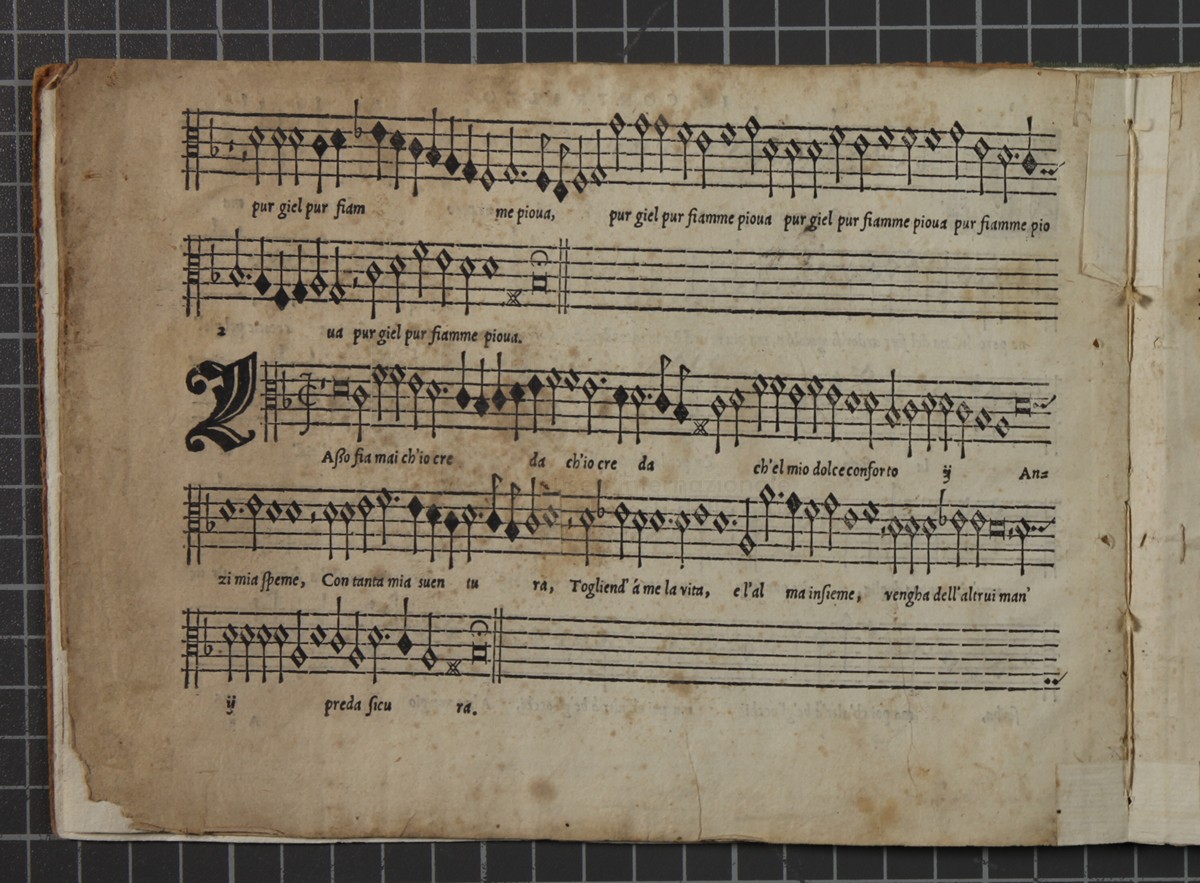 pur giel pur fiam me pioua, pur giel pur fiamme pioua pur giel pur fiamme pioua pur fiamme pio
2 ua pur giel pur fiamme pioua.
L Aßo fia mai ch'io cre da ch'io cre da ch'el mio dolce conforto ij An=
zi mia speme, Con tanta mia suen tu ra, Togliend' á me la vita, e l'al ma insieme, vengha dell'altrui man'
ij preda sicu ra.